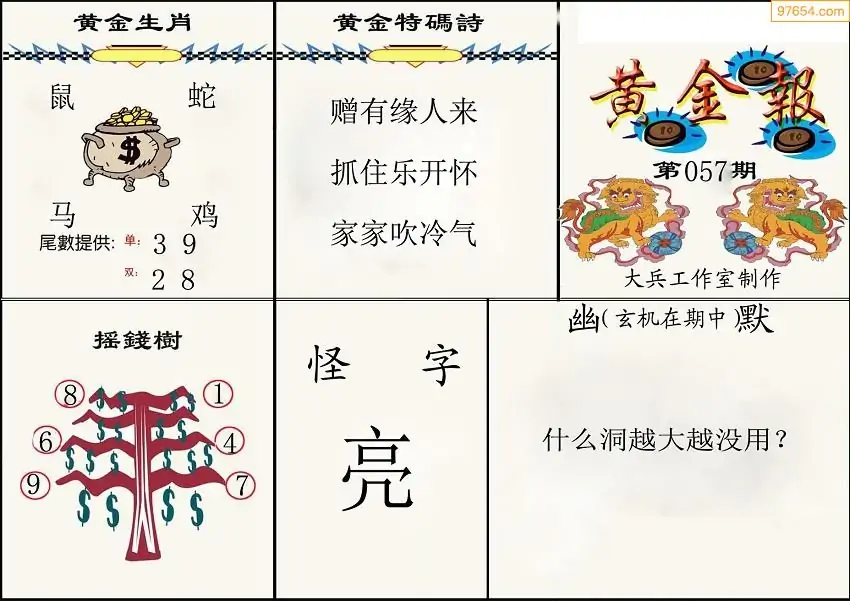 97654.com
黄金生肖
鼠 蛇
$
马 鸡
尾數提供: 单: 3 9
双: 2 8
黄金特碼詩
赠有缘人来
抓住乐开怀
家家吹冷气
黄金報
10
10
10
第057期
大兵工作室制作
摇錢樹
8 1
$ $ $ $
$ $ $ $
6 4
$ $ $ $ $ $
9 7
$ $ $ $
怪 字
亮
幽(玄机在期中)默
什么洞越大越没用?